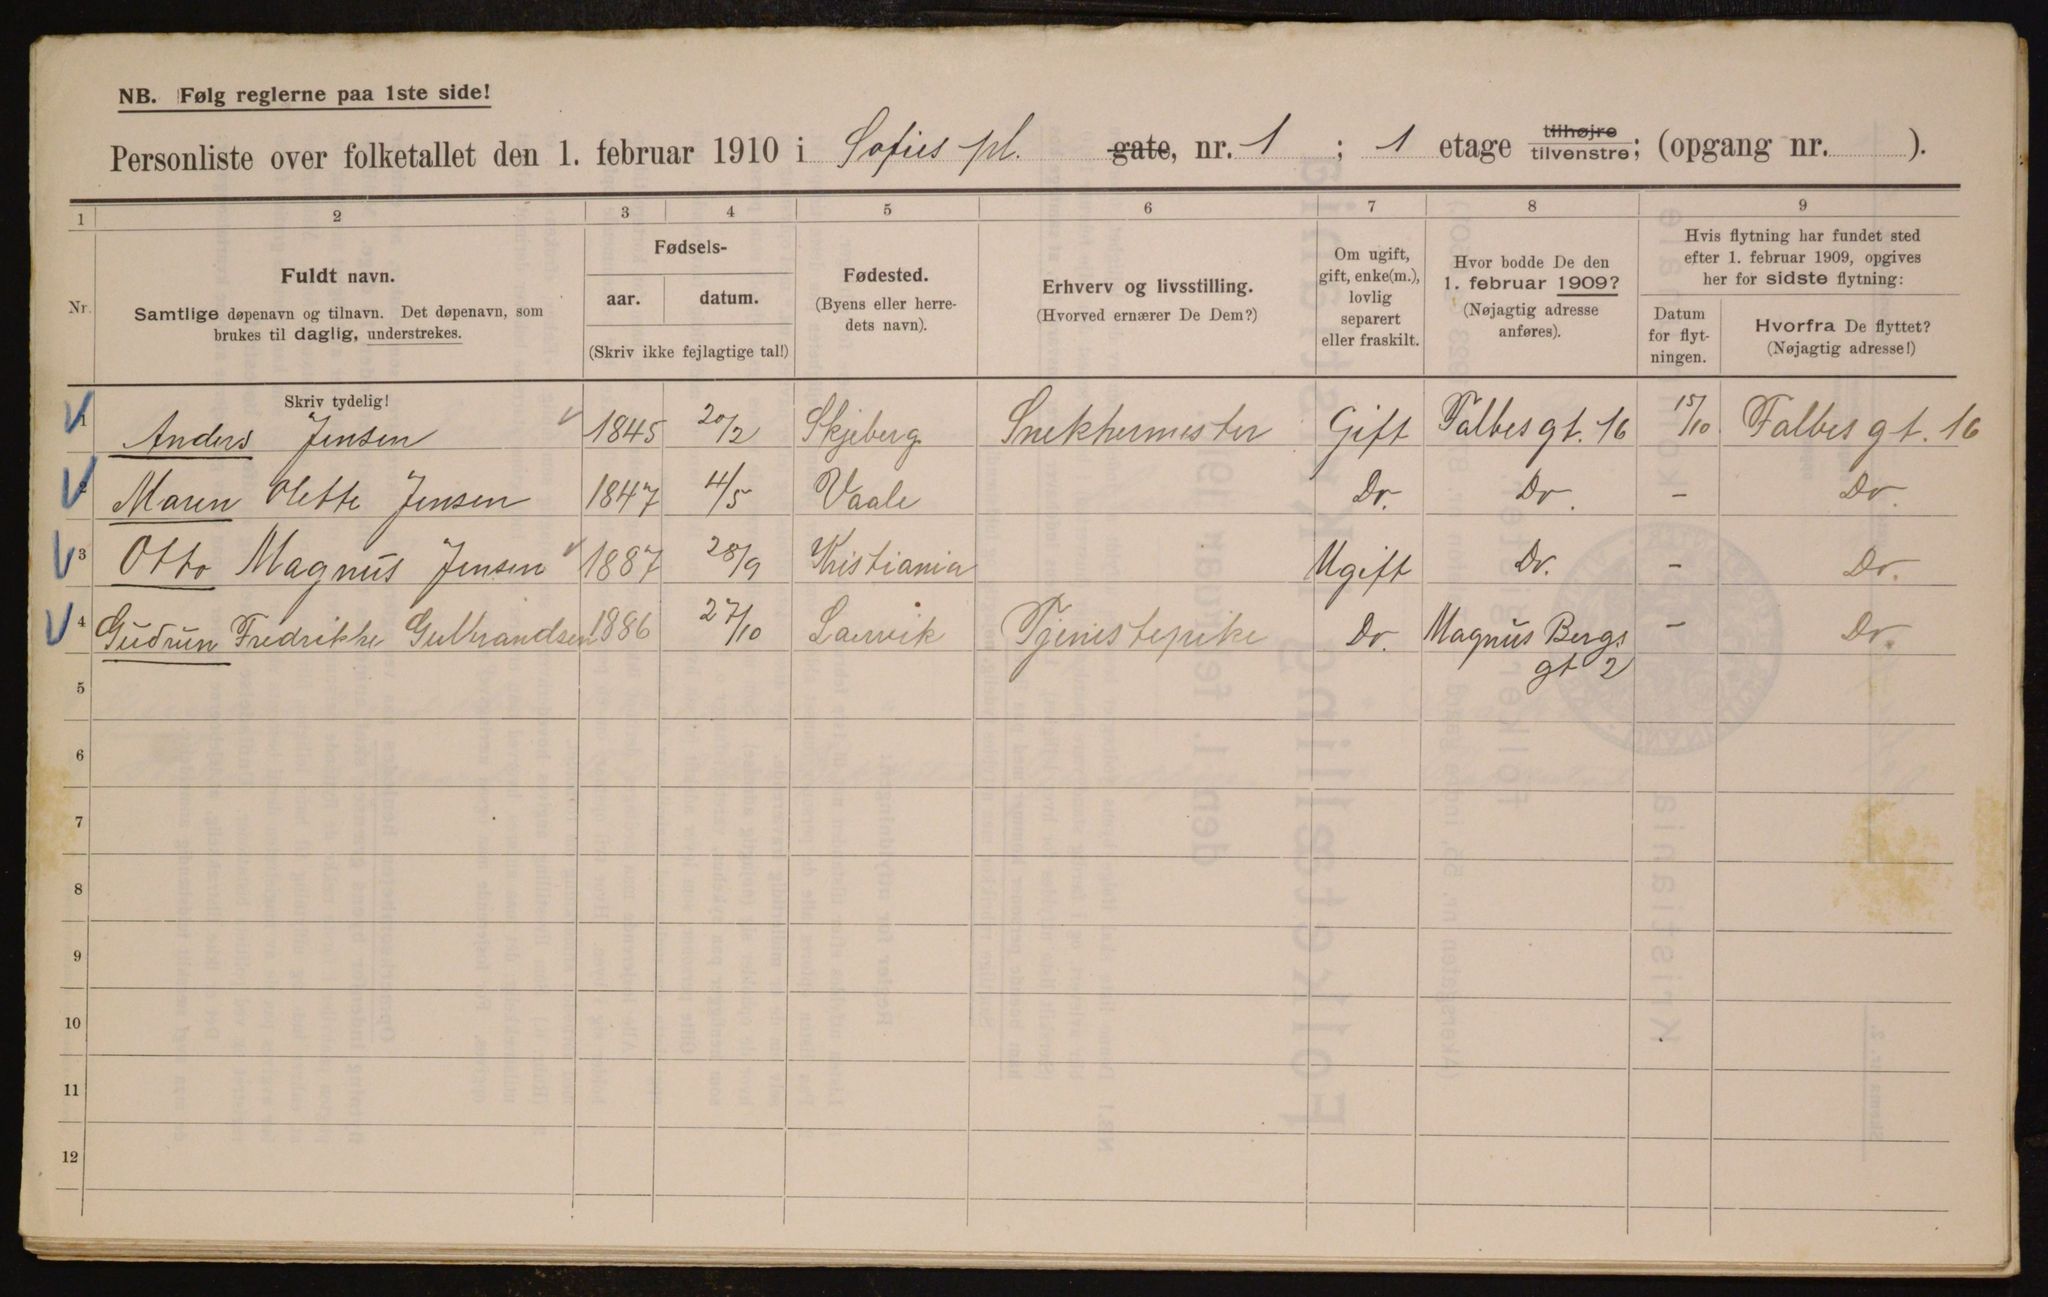 NB. Følg reglerne paa 1ste side!
Personliste over folketallet den 1. februar 1910 i Sofies pl. gate, nr. 1 ; 1 etage tilhøjre tilvenstre; (opgang nr. ).
1 2 3 4 5 6 7 8 9
Nr.
Fuldt navn.
Samtlige døpenavn og tilnavn. Det døpenavn, som
brukes til daglig, understrekes.
Fødsels-
aar. datum.
(Skriv ikke fejlagtige tal!)
Fødested.
(Byens eller herre-
dets navn).
Erhverv og livsstilling.
(Hvorved ernærer De Dem?)
Om ugift,
gift, enke(m.),
lovlig
separert
eller fraskilt.
Hvor bodde De den
1. februar 1909?
(Nøjagtig adresse
anføres).
Hvis flytning har fundet sted
efter 1. februar 1909, opgives
her for sidste flytning:
Datum
for flyt-
ningen.
Hvorfra De flyttet?
(Nøjagtig adresse!)
Skriv tydelig!
1 Anders Jensen 1845 20/2 Skjeberg Snekkermester Gift Falbes gt. 16 15/10 Falbes gt. 16
2 Maren Olette Jensen 1847 4/5 Vaale Do. Do. - Do
3 Otto Magnus Jensen 1887 28/9 Kristiania Ugift Do. - Do.
4 Gudrun Fredrikke Gulbrandsen 1886 27/10 Larvik Tjenistepike Do. Magnus Bergs - Do.
gt 2
5
6
7
8
9
10
11
12